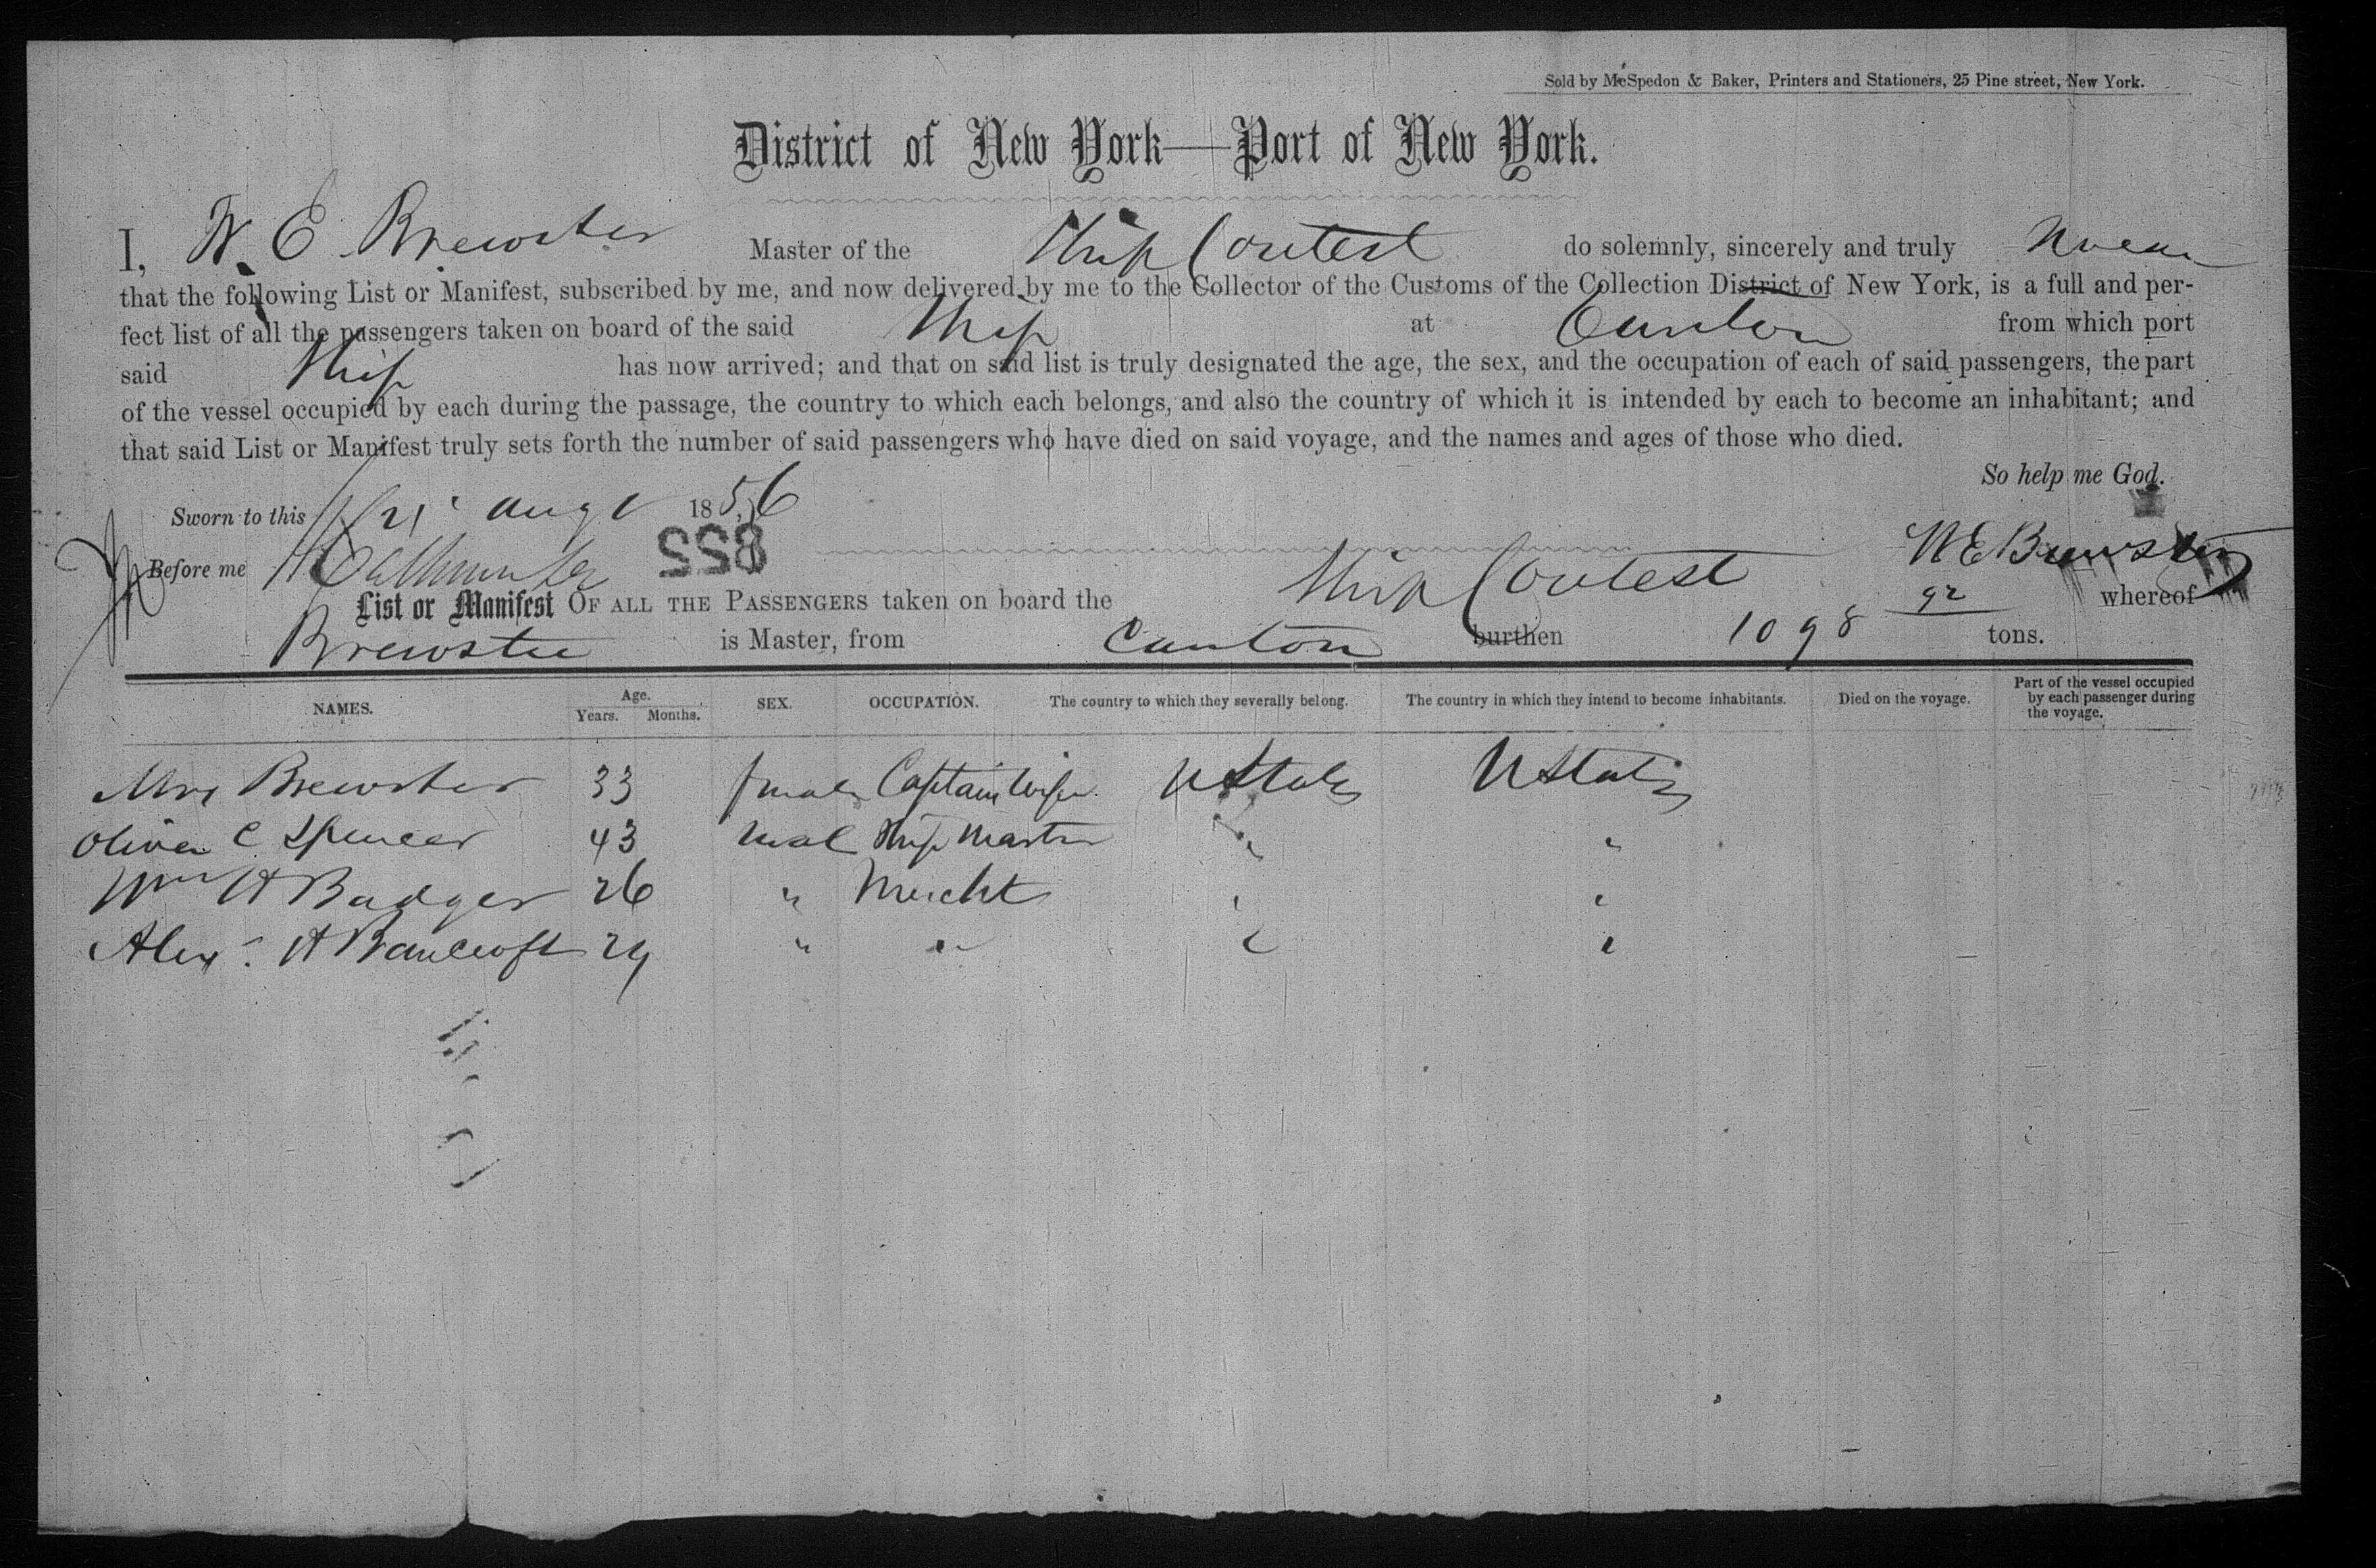 Sold by McSpedon & Baker, Printers and Stationers, 25 Pine street, New York.
District of New York—Port of New York.
I, W. E Brewster Master of the Ship Contest do solemnly, sincerely and truly swear
that the following List or Manifest, subscribed by me, and now delivered by me to the Collector of the Customs of the Collection District of New York, is a full and per-
fect list of all the passengers taken on board of the said Ship at Canton from which port
said Ship has now arrived; and that on said list is truly designated the age, the sex, and the occupation of each of said passengers, the part
of the vessel occupied by each during the passage, the country to which each belongs, and also the country of which it is intended by each to become an inhabitant; and
that said List or Manifest truly sets forth the number of said passengers who have died on said voyage, and the names and ages of those who died.
So help me God.
Sworn to this 21 Augt 1856
855
Before me
W E Brewster
List or Manifest OF ALL THE PASSENGERS taken on board the Ship Contest whereof
Brewster is Master, from Canton burthen 1098 92 tons.
NAMES. Age. Years. Months. SEX. OCCUPATION. The country to which they severally belong. The country in which they intend to become inhabitants. Died on the voyage. Part of the vessel occupied by each passenger during the voyage.
Mrs Brewster 33 female Captain Wife UStates UStates
Oliver C Spencer 43 male Ship Master " "
Wm H Badger 26 " Mercht " "
Alexr. H Bancroft 29 " " " "